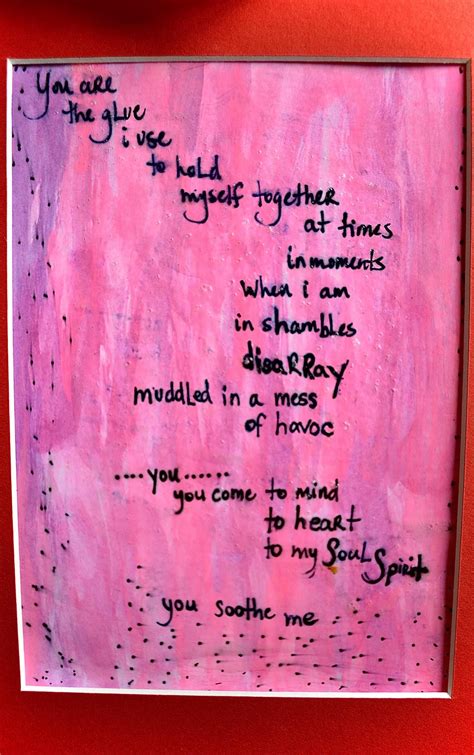 You are
the glue
i use
to hold
myself together
at times
in moments
when i am
in shambles
disaRRay
muddled in a mess
of havoc
....you......
you come to mind
to heart
to my Soul Spirit
you soothe me